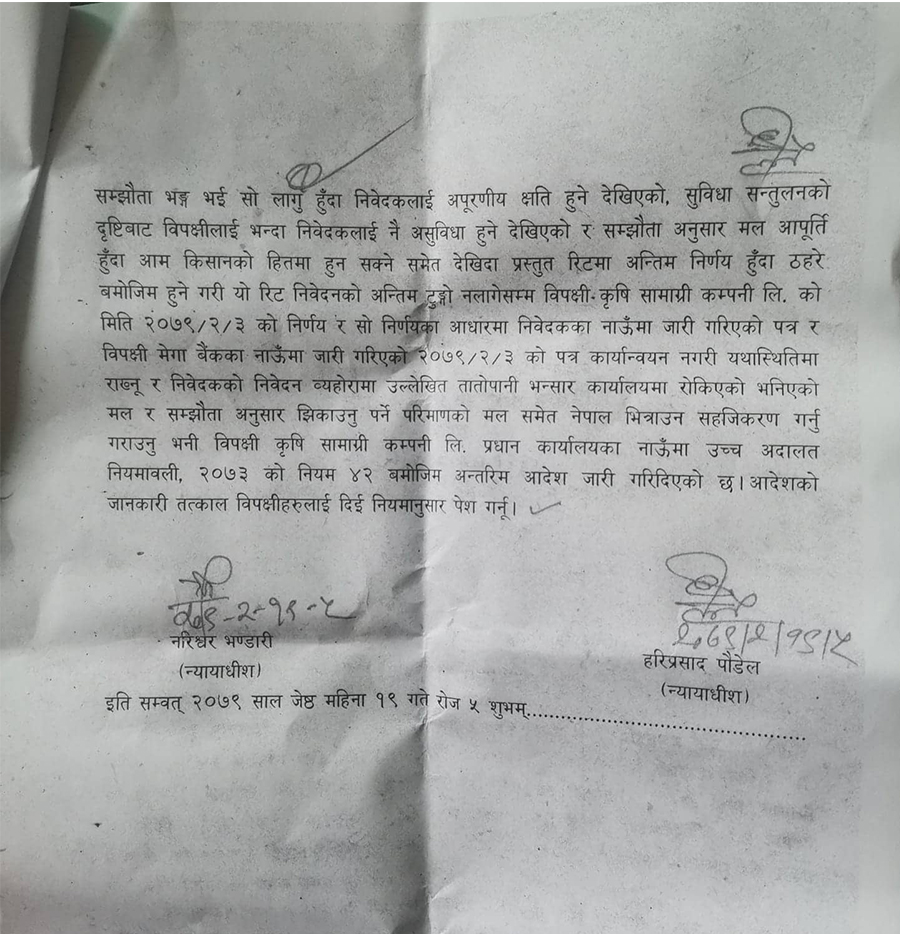 सम्झौता भङ्ग भई सो लागुँ हुँदा निवेदकलाई अपूरणीय क्षति हुने देखिएको, सुविधा सन्तुलनको
दृष्टिबाट विपक्षीलाई भन्दा निवेदकलाई नै असुविधा हुने देखिएको र सम्झौता अनुसार मल आपूर्ति
हुँदा आम किसानको हितमा हुन सक्ने समेत देखिदा प्रस्तुत रिटमा अन्तिम निर्णय हुँदा ठहरे
बमोजिम हुने गरी यो रिट निवेदनको अन्तिम टुङ्गो नलागेसम्म विपक्षी कृषि सामाग्री कम्पनी लि. को
मिति २०७९/२/३ को निर्णय र सो निर्णयका आधारमा निवेदकका नाऊँमा जारी गरिएको पत्र र
विपक्षी मेगा बैंकका नाऊँमा जारी गरिएको २०७९/२/३ को पत्र कार्यान्वयन नगरी यथास्थितिमा
राख्नू र निवेदकको निवेदन व्यहोरामा उल्लेखित तातोपानी भन्सार कार्यालयमा रोकिएको भनिएको
मल र सम्झौता अनुसार झिकाउनु पर्ने परिमाणको मल समेत नेपाल भित्राउन सहजिकरण गर्नु
गराउनु भनी विपक्षी कृषि सामाग्री कम्पनी लि. प्रधान कार्यालयका नाऊँमा उच्च अदालत
नियमावली, २०७३ को नियम ४२ बमोजिम अन्तरिम आदेश जारी गरिदिएको छ। आदेशको
जानकारी तत्काल विपक्षीहरुलाई दिई नियमानुसार पेश गर्नू।
२०७९/२/१९/५
नरिश्वर भण्डारी
(न्यायाधीश)
हरिप्रसाद पौडेल
(न्यायाधीश)
इति सम्वत् २०७९ साल जेष्ठ महिना १९ गते रोज ५ शुभम्..............................................